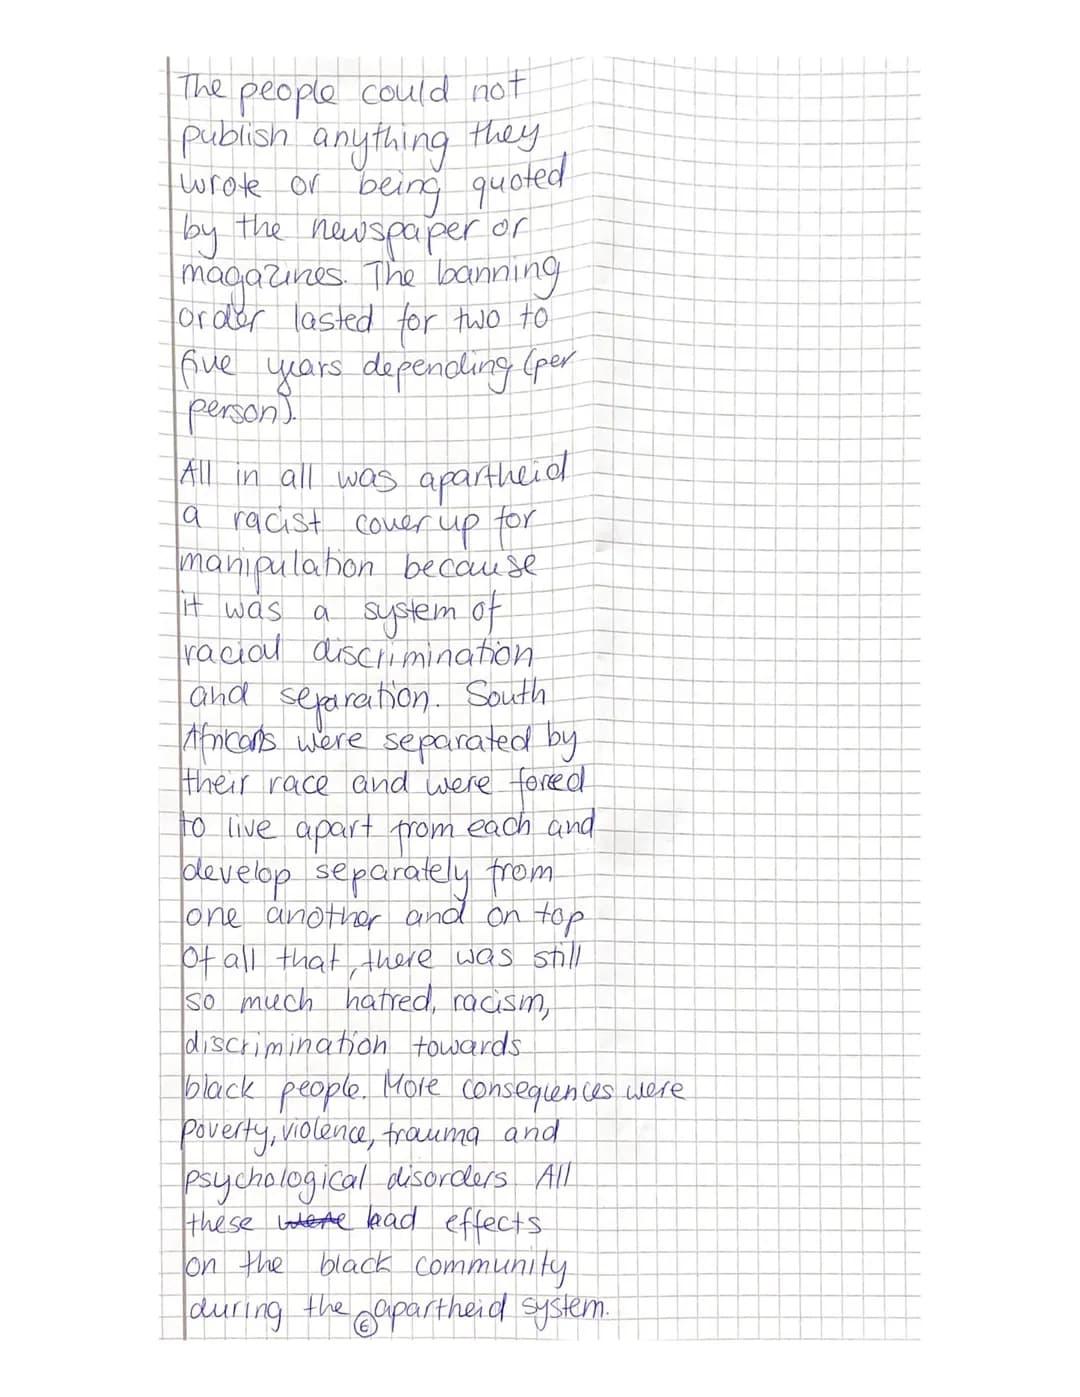 The people could not
publish anything they
wrote or being quoted
by the newspaper or
magazines. The banning
order lasted for two to
five years depending (per
person).
All in all was apartheid
a racist cover up for
manipulation because
it was a system of
racial discrimination
and separation. South
Africans were separated by
their race and were forced
to live apart from each and
develop separately from
one another and on top
of all that, there was still
so much hatred, racism,
discrimination towards
black people. More consequences were
poverty, violence, trauma and
psychological disorders. All
these were had effects
on the black community
during the apartheid system.
6